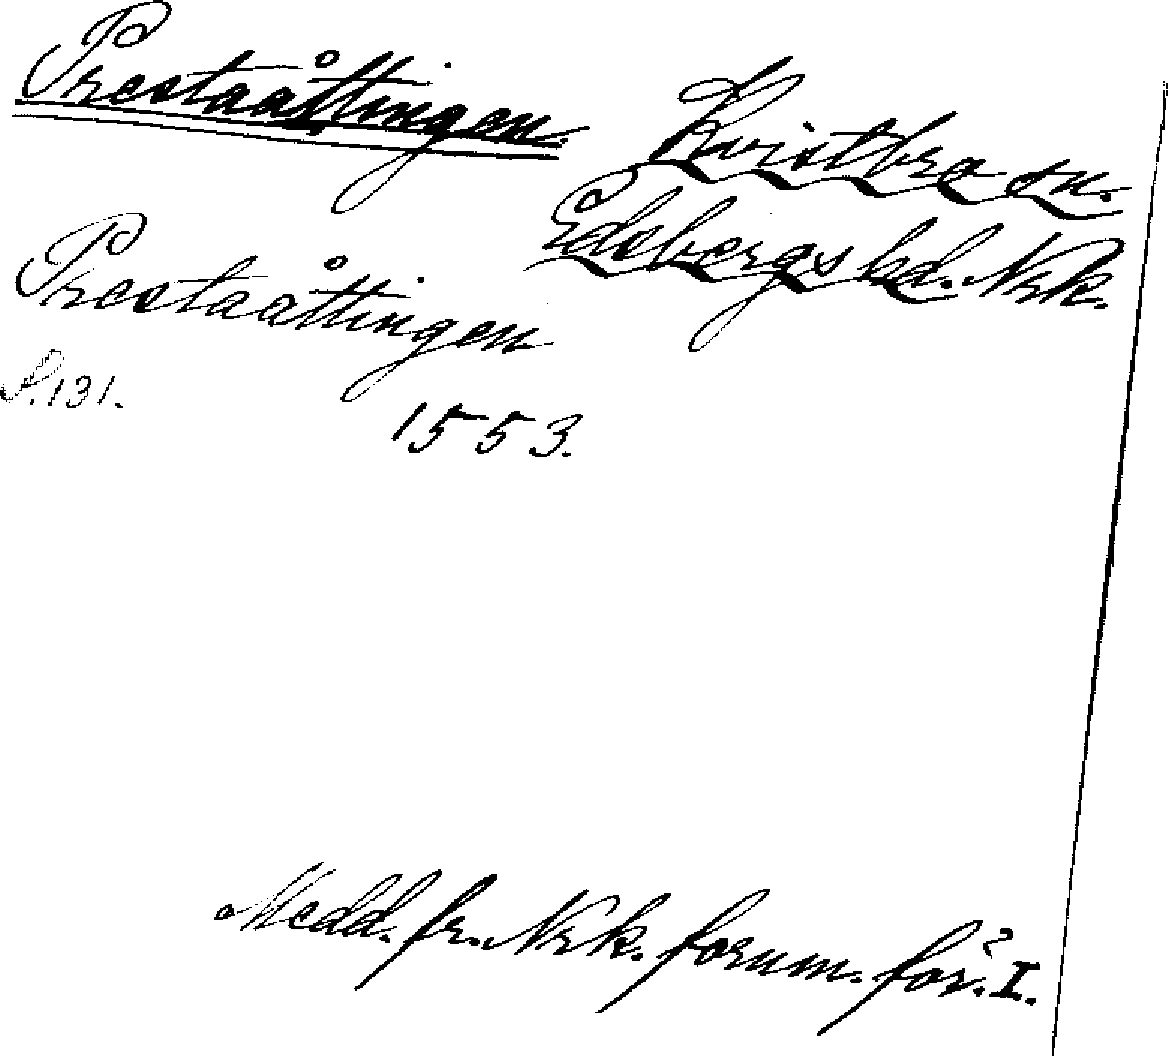 Prestaåttingen
Kvistbro sn.
Edsbergs hd. Nrk.
Prestaåttingen
S. 131.
1553.
Medd. fr. Nrk. fornm. för. I.